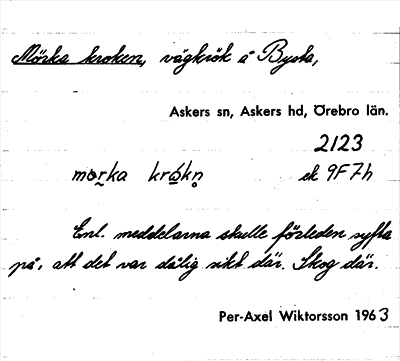 Mörka kroken, vägkrök å Bysta,
Askers sn, Askers hd, Örebro län.
2123
mo̰rka krókn̥ ek 9F7h
Enl. meddelarna skulle förleden syfta
på, att det var dålig sikt där. Skog där.
Per-Axel Wiktorsson 1963